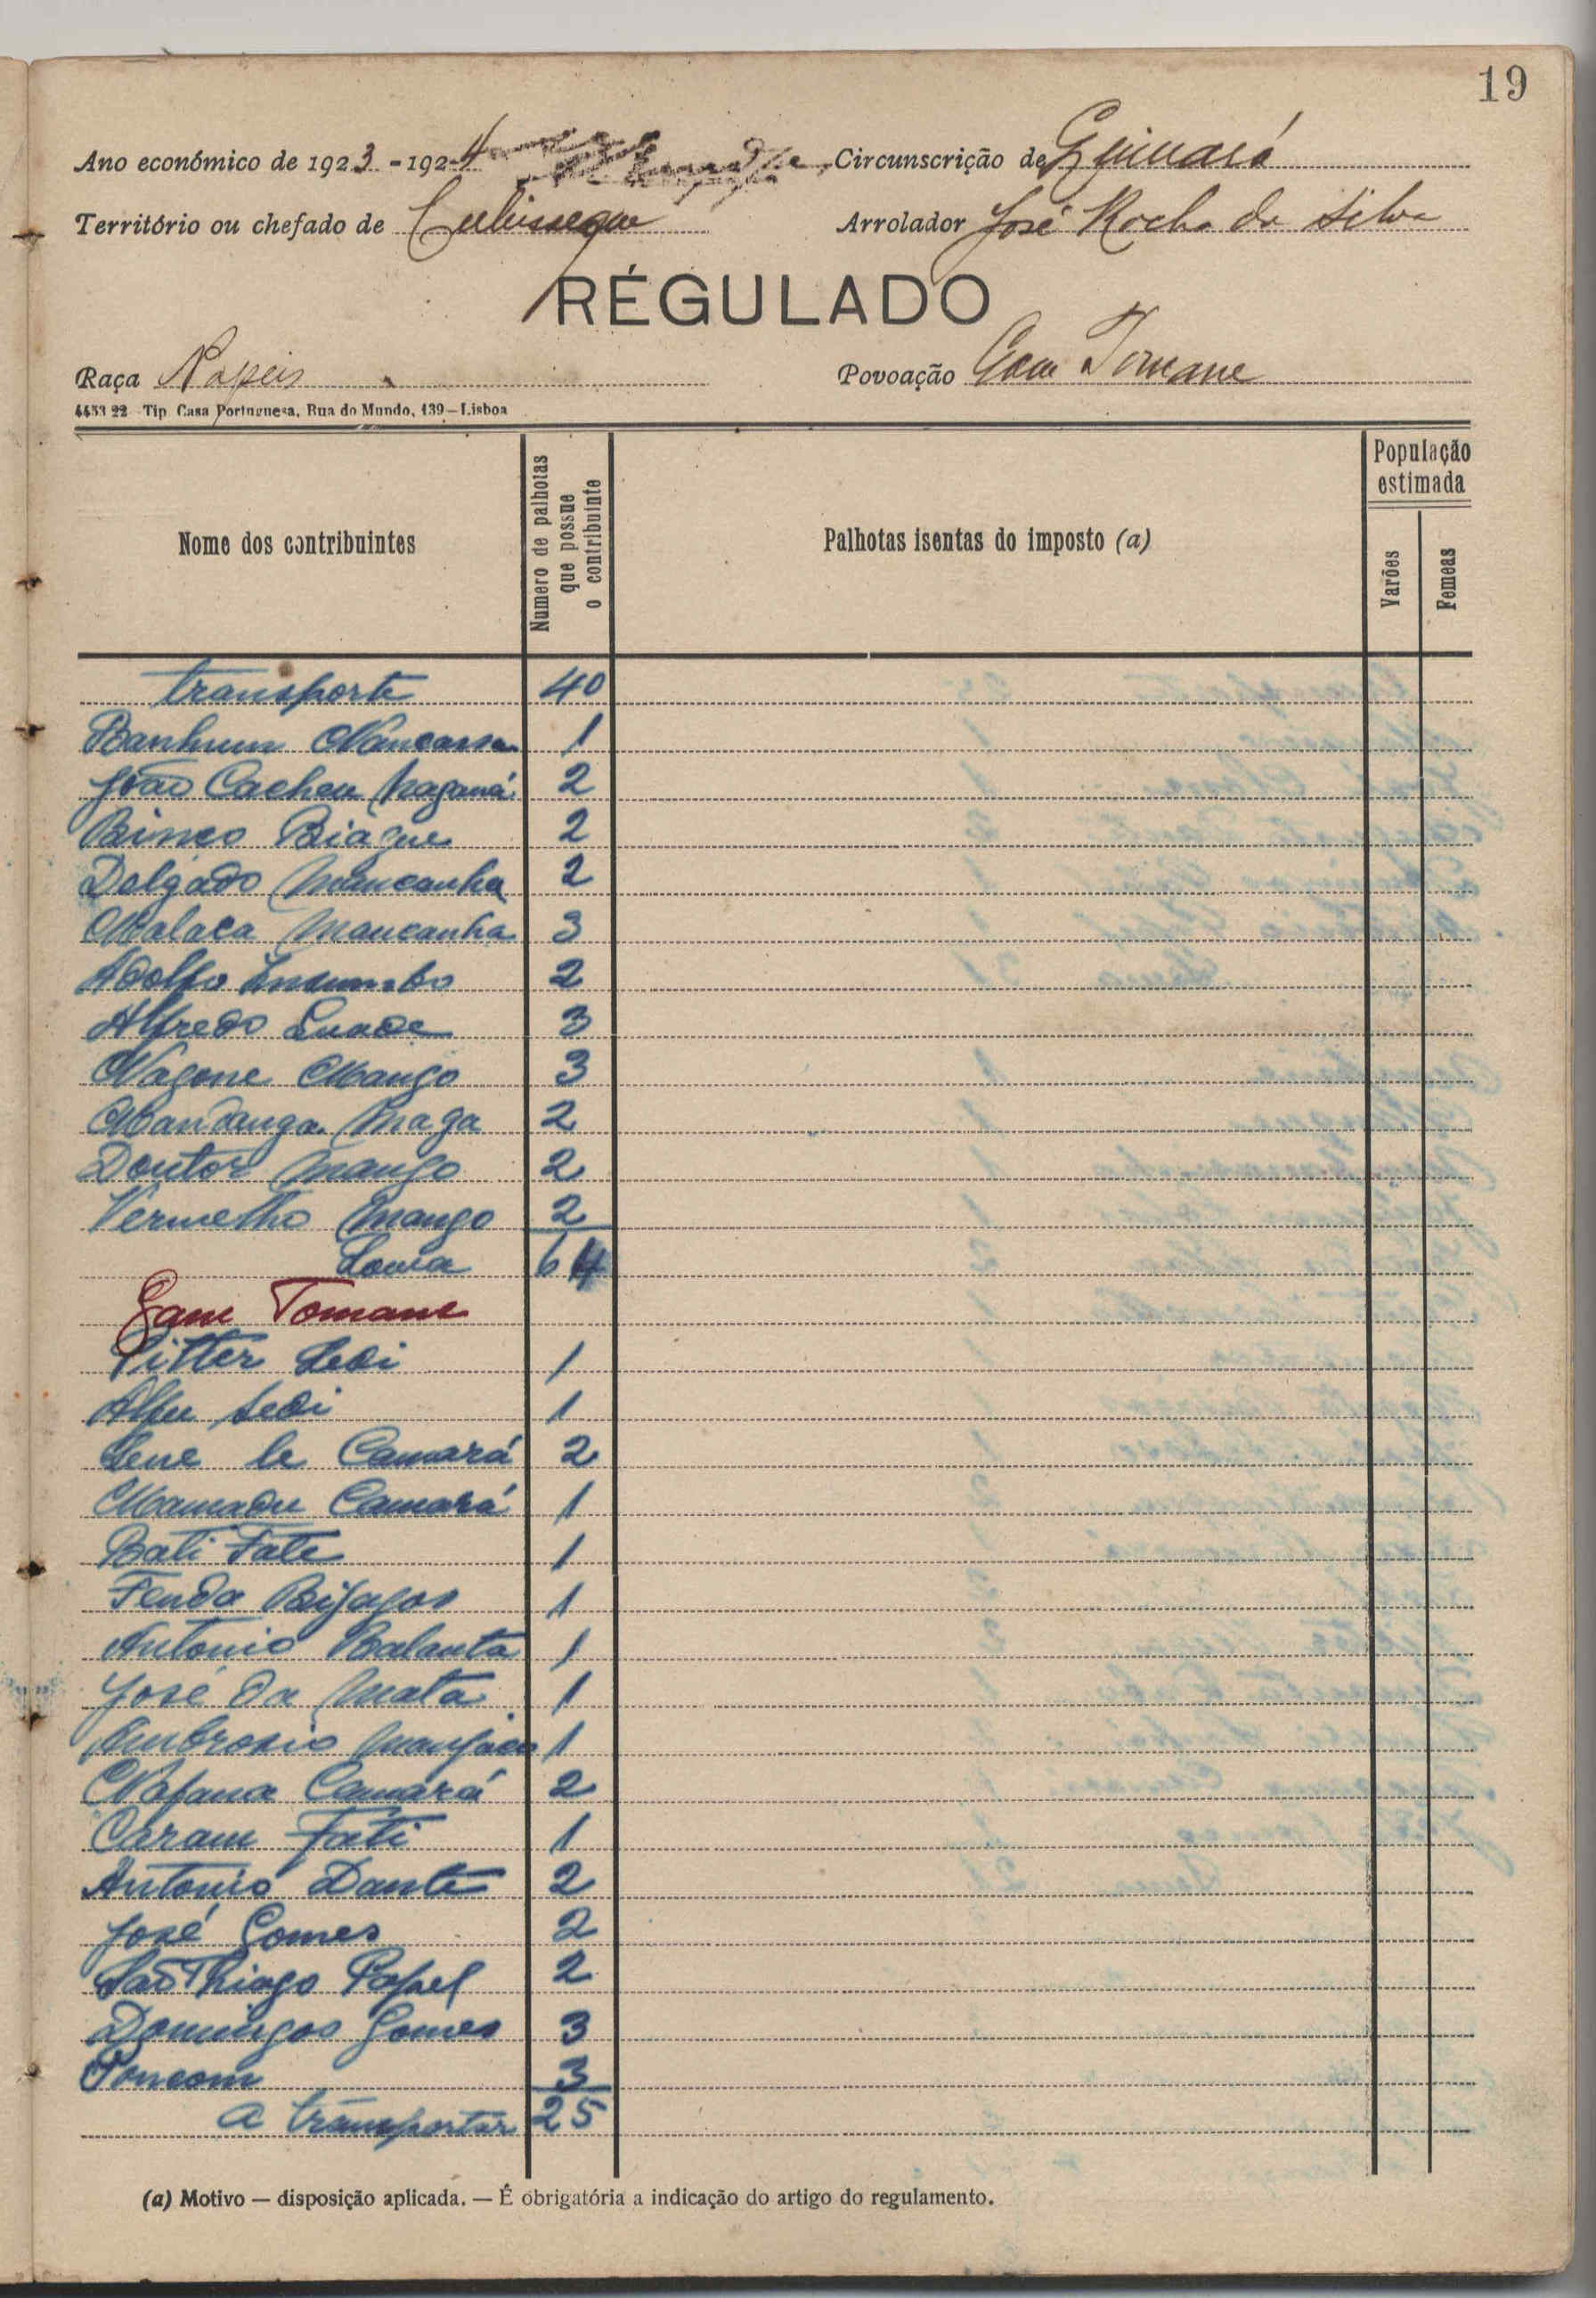 19
Ano económico de 1923-1924 Circunscrição de
Território ou chefado de Arrolador José Rocha da Silva
RÉGULADO
Raça Papeis Povoação Gam Tomane
4453 22 Tip Casa Portuguesa, Rua do Mundo, 139—Lisboa
Nome dos contribuintes
Numero de palhotas que possue o contribuinte
Palhotas isentas do imposto (a)
População estimada
Varões
Femeas
transporte 40
Banhum 1
João Cacheu 2
Binco Biague 2
Delgado Mancanha 2
Malaca Mancanha 3
Adolfo 2
Alfredo 3
Nagone Mango 3
Mandanga Maga 2
Doutor Mango 2
Vermelho Mango 2
Soma 64
Gam Tomane
Pitter Sedi 1
Alfu Sedi 1
Sene le Camará 2
Mamadu Camará 1
Bati Fate 1
Fenda Bijagos 1
Antonio Balanta 1
José da Mata 1
Ambrosio Manjaco 1
Nafana Camará 2
Caram Fati 1
Antonio Dante 2
José Gomes 2
São Thiago Papel 2
Domingos Gomes 3
3
a transportar 25
(a) Motivo — disposição aplicada. — É obrigatória a indicação do artigo do regulamento.